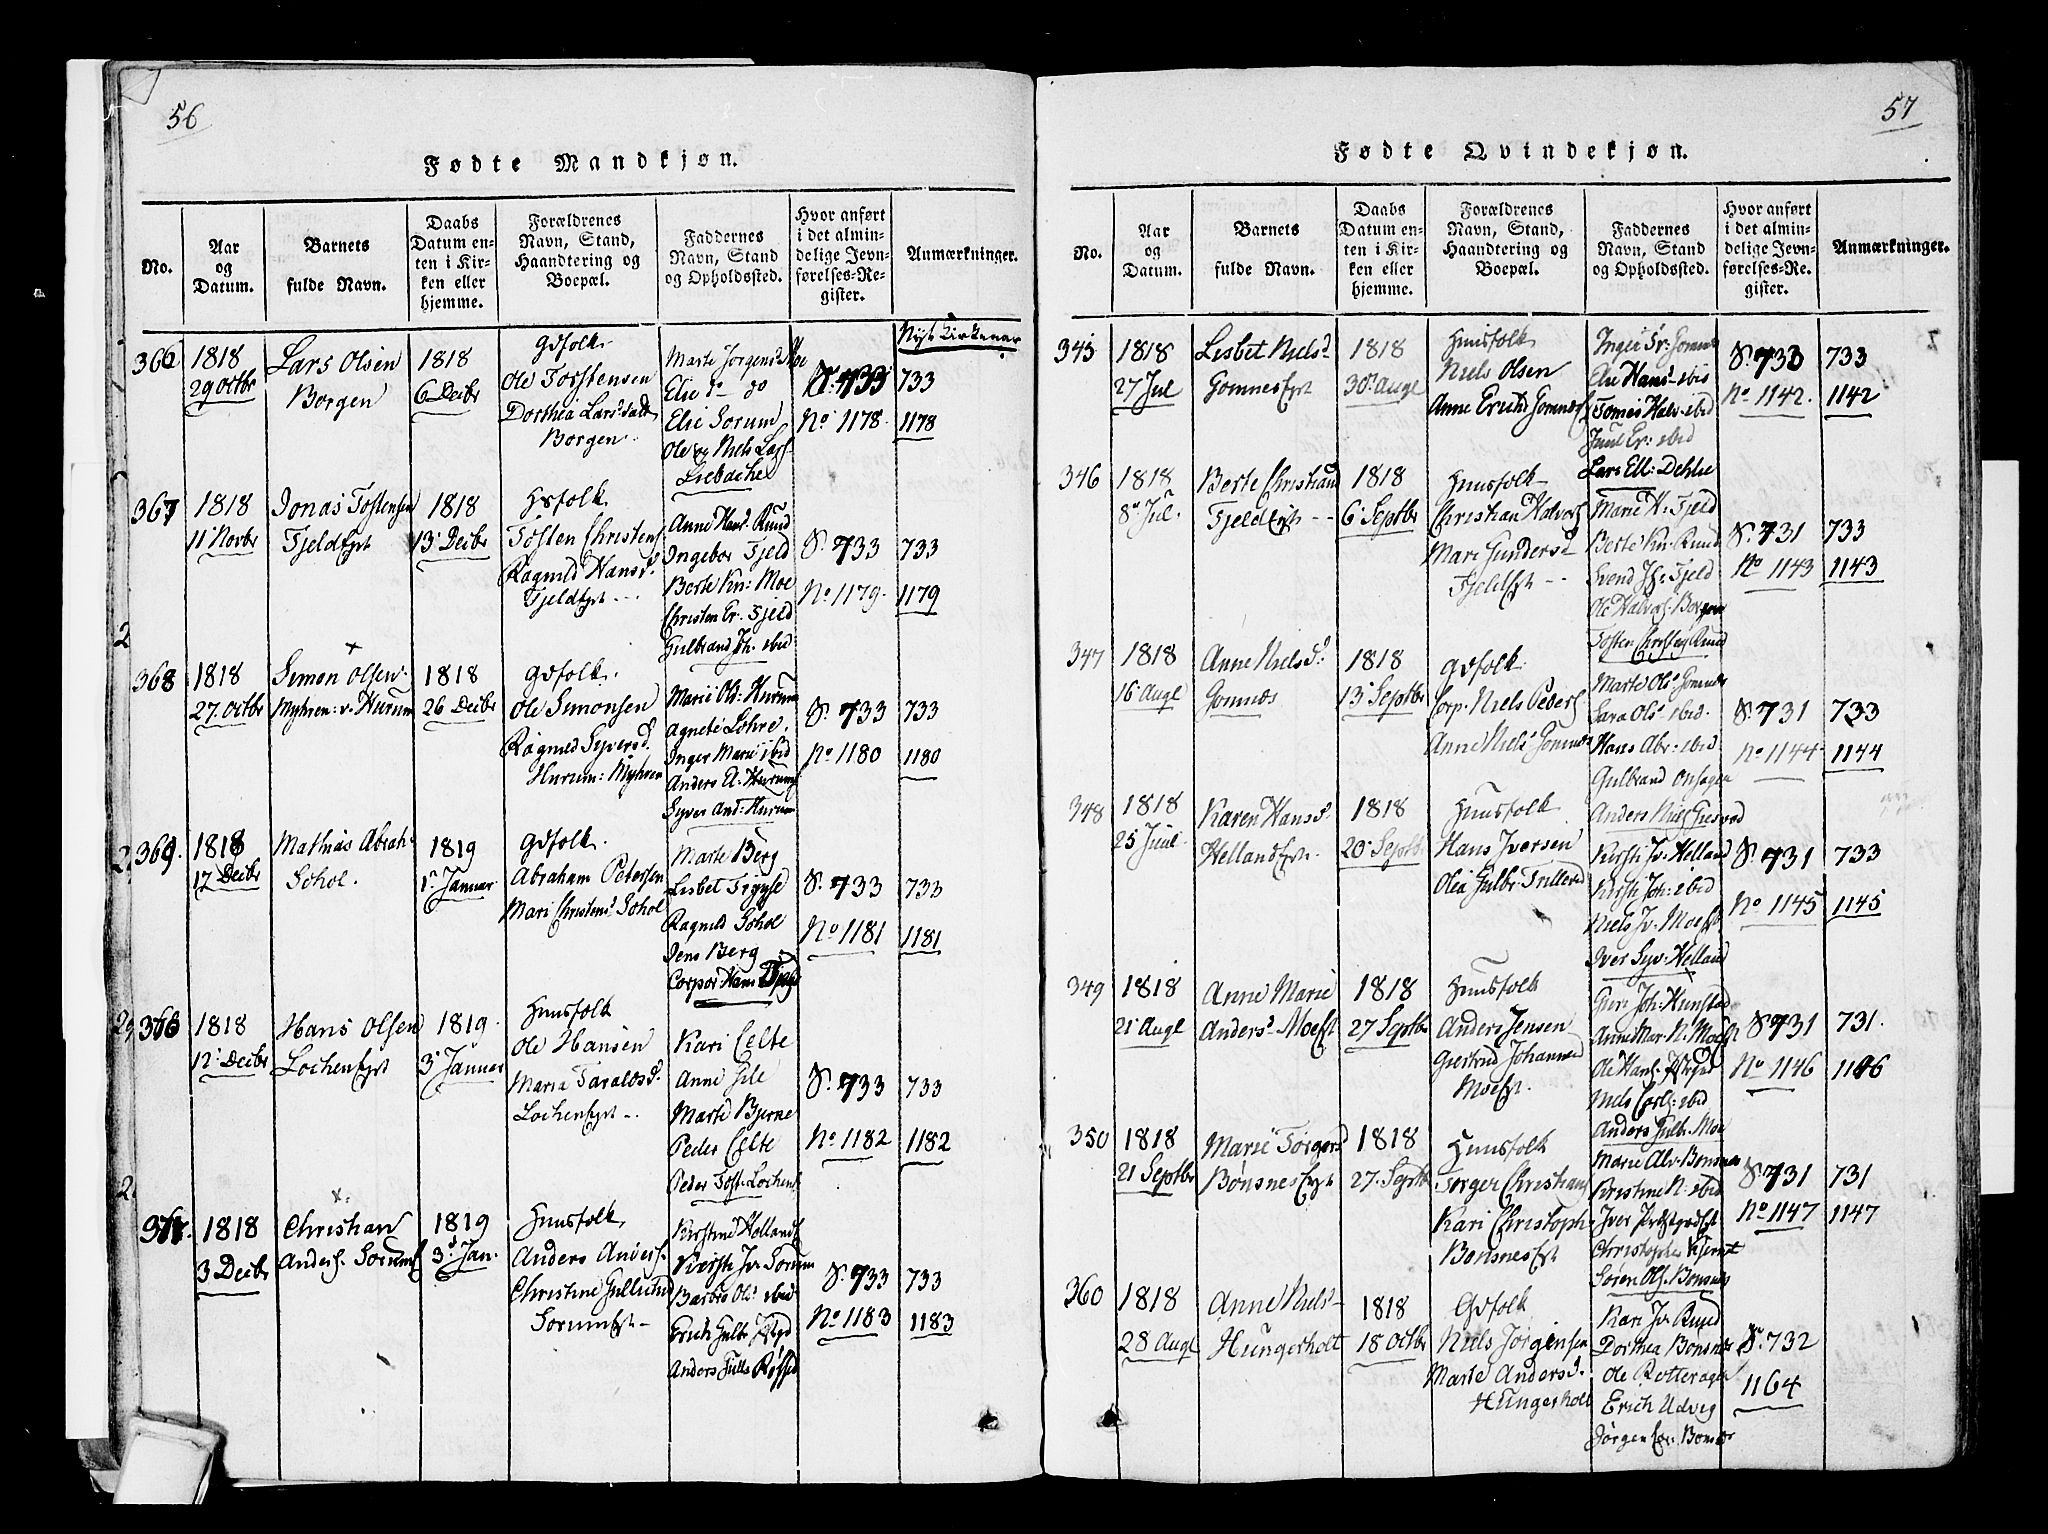 56
Fødte Mandkjøn.
No.
Aar
og
Datum.
Barnets
fulde Navn.
Daabs
Datum en-
ten i Kir-
ken eller
hjemme.
Forældrenes
Navn, Stand,
Haandtering og
Boepæl.
Faddernes
Navn, Stand
og Opholdssted.
Hvor anført
i det almin-
delige Jevn-
førelses-Re-
gister.
Anmærkninger.
366
1818
29 Octbr
Lars Olsen
Borgen
1818
6 Decbr
Gdfolk
Ole Torstensen
Dorthea Lars
Borgen
Marte Jørgens
Elie
Elie Sorum
Ole og Niels Lars
S. 733
No 1178
733
1178
367
1818
11 Novbr
Jonas Tostensen
Fjeld
1818
13 Decbr
Tosten Christens
Ragnild Hansd.
Fjeld
Anne Hans. Rund
Ingebor Fjeld
Berte Kn: Moe
Christen Er. Fjeld
Gulbrand Joh. ibid
S. 733
No 1179
733
1179
368
1818
27. Octbr
Simon Olsen
Myhren: v: Hurum
1818
26 Decbr
Gdfolk.
Ole Simonsen
Ragnild Syversd.
Hurum: Myhren
Marie Ols: Hurum
Agnete Lohre.
Inger Marie ibid
Anders El. Hurum
Syver And: Hurum
S. 733
No 1180
733
1180
369.
1818
17 Decbr
Mathias Abrah
Sohol.
1819
1. Januar
Gdfolk.
Abraham Petersen
Mari Christensd Sohol
Marte Berg
Lisbet
Ragnild Sohol
Jens Berg
Corpor Hans
S. 733
No 1181
733
1181
366
1818
12. Decbr
Hans Olsen
Lochen
1819
3. Januar
Huusfolk
Ole Hansen
Maria Taraldsd.
Lochen
Kari Celte
Anne Gile
Marte Bjerne
Peder Celte
Peder Tost: Lochen
S. 733
No 1182
733
1182
1818
3 Decbr
Christian
Anders. Sorum
1819
3. Jan.
Huusfolk
Anders Anders.
Christine
Sorum
Kirstine Holland
Kirsti Iv. Sorum
Barbro Ols. ibid
Erich Gulb.
Anders
S. 733
No 1183
733
1183
57
Fødte Qvindekjøn.
No.
Aar
og
Datum.
Barnets
fulde Navn.
Daabs
Datum en-
ten i Kir-
ken eller
hjemme.
Forældrenes
Navn, Stand,
Haandtering og
Boepæl.
Faddernes
Navn, Stand
og Opholdssted.
Hvor anført
i det almin-
delige Jevn-
førelses-Re-
gister.
Anmærkninger.
345
1818
27 Jul
Lisbet Niels
Gomnes
1818
30 Augl
Huusfolk
Niels Olsen
Anne Erichs Gomnes
Else Hans. ibid
Tomes Halv. ibid
Juul Er: ibid
Lars Ell: Dehlie
S. 733
No 1142.
733
1142
346
1818
8. Jul.
Berte Christians
Fjeld
1818
6. Septbr
Huusfolk
Christian Halvors
Mari Gundersd
Fjeld
Marie H: Fjeld
Berte Kn. Rund
Svend Joh: Fjeld
Ole Halvors. Borgen
S. 731
No 1143
733
1143
347
1818
16 Augl
Anne Nielsd:
Gomnæs
1818
13. Septbr
Gdfolk
Corp. Niels Peders
Anne Niels Gomnæs
Marte Ols Gomnæs
Sara Ols. ibid.
Hans Abr: ibid
Gulbrand Opsagen
Anders Niels
S. 731
No 1144
733
1144
348
1818
25 Juul
Karen Hansd.
Helland
1818
20. Septbr
Huusfolk
Hans Iversen
Olea Gulbr. Trillerud
Kirsti Iv. Helland
Kirsti Joh: ibid
Niels Iv. Moe
Iver Syv: Helland
S. 731
No 1145
733
1145
349
1818
21 Augl
Anne Marie
Anders. Moe
1818
27 Septbr
Huusfolk
Anders Jensen
Giertrud Johannesd
Moe
Guri Joh:
Anne Mar. N. Moe
Ole Hans.
Niels Carls: ibid
Anders Gulb. Moe
S. 731
No 1146
731.
1146
350
1818
21 Septbr
Marie Torgers
Bønsnes
1818
27. Septbr
Huusfolk
Torger Christians
Kari Christoph
Bonsnes
Marie Alv. Bonsnes
Kirstine N. ibid
Iver
Christopher
Søren Ols. Bonsnes
S. 731
No 1147
731
1147
360
1818
28 Augl
Anne Niels
Hungerholt
1818
18 Octbr
Gdfolk
Niels Jørgensen
Marte Andersd.
Hungerholt
Kari Iv. Rund
Dorthea Bønsnæs
Ole Retteragen
Erich Udvig
Jørgen Bonsnæs
S. 732
1164